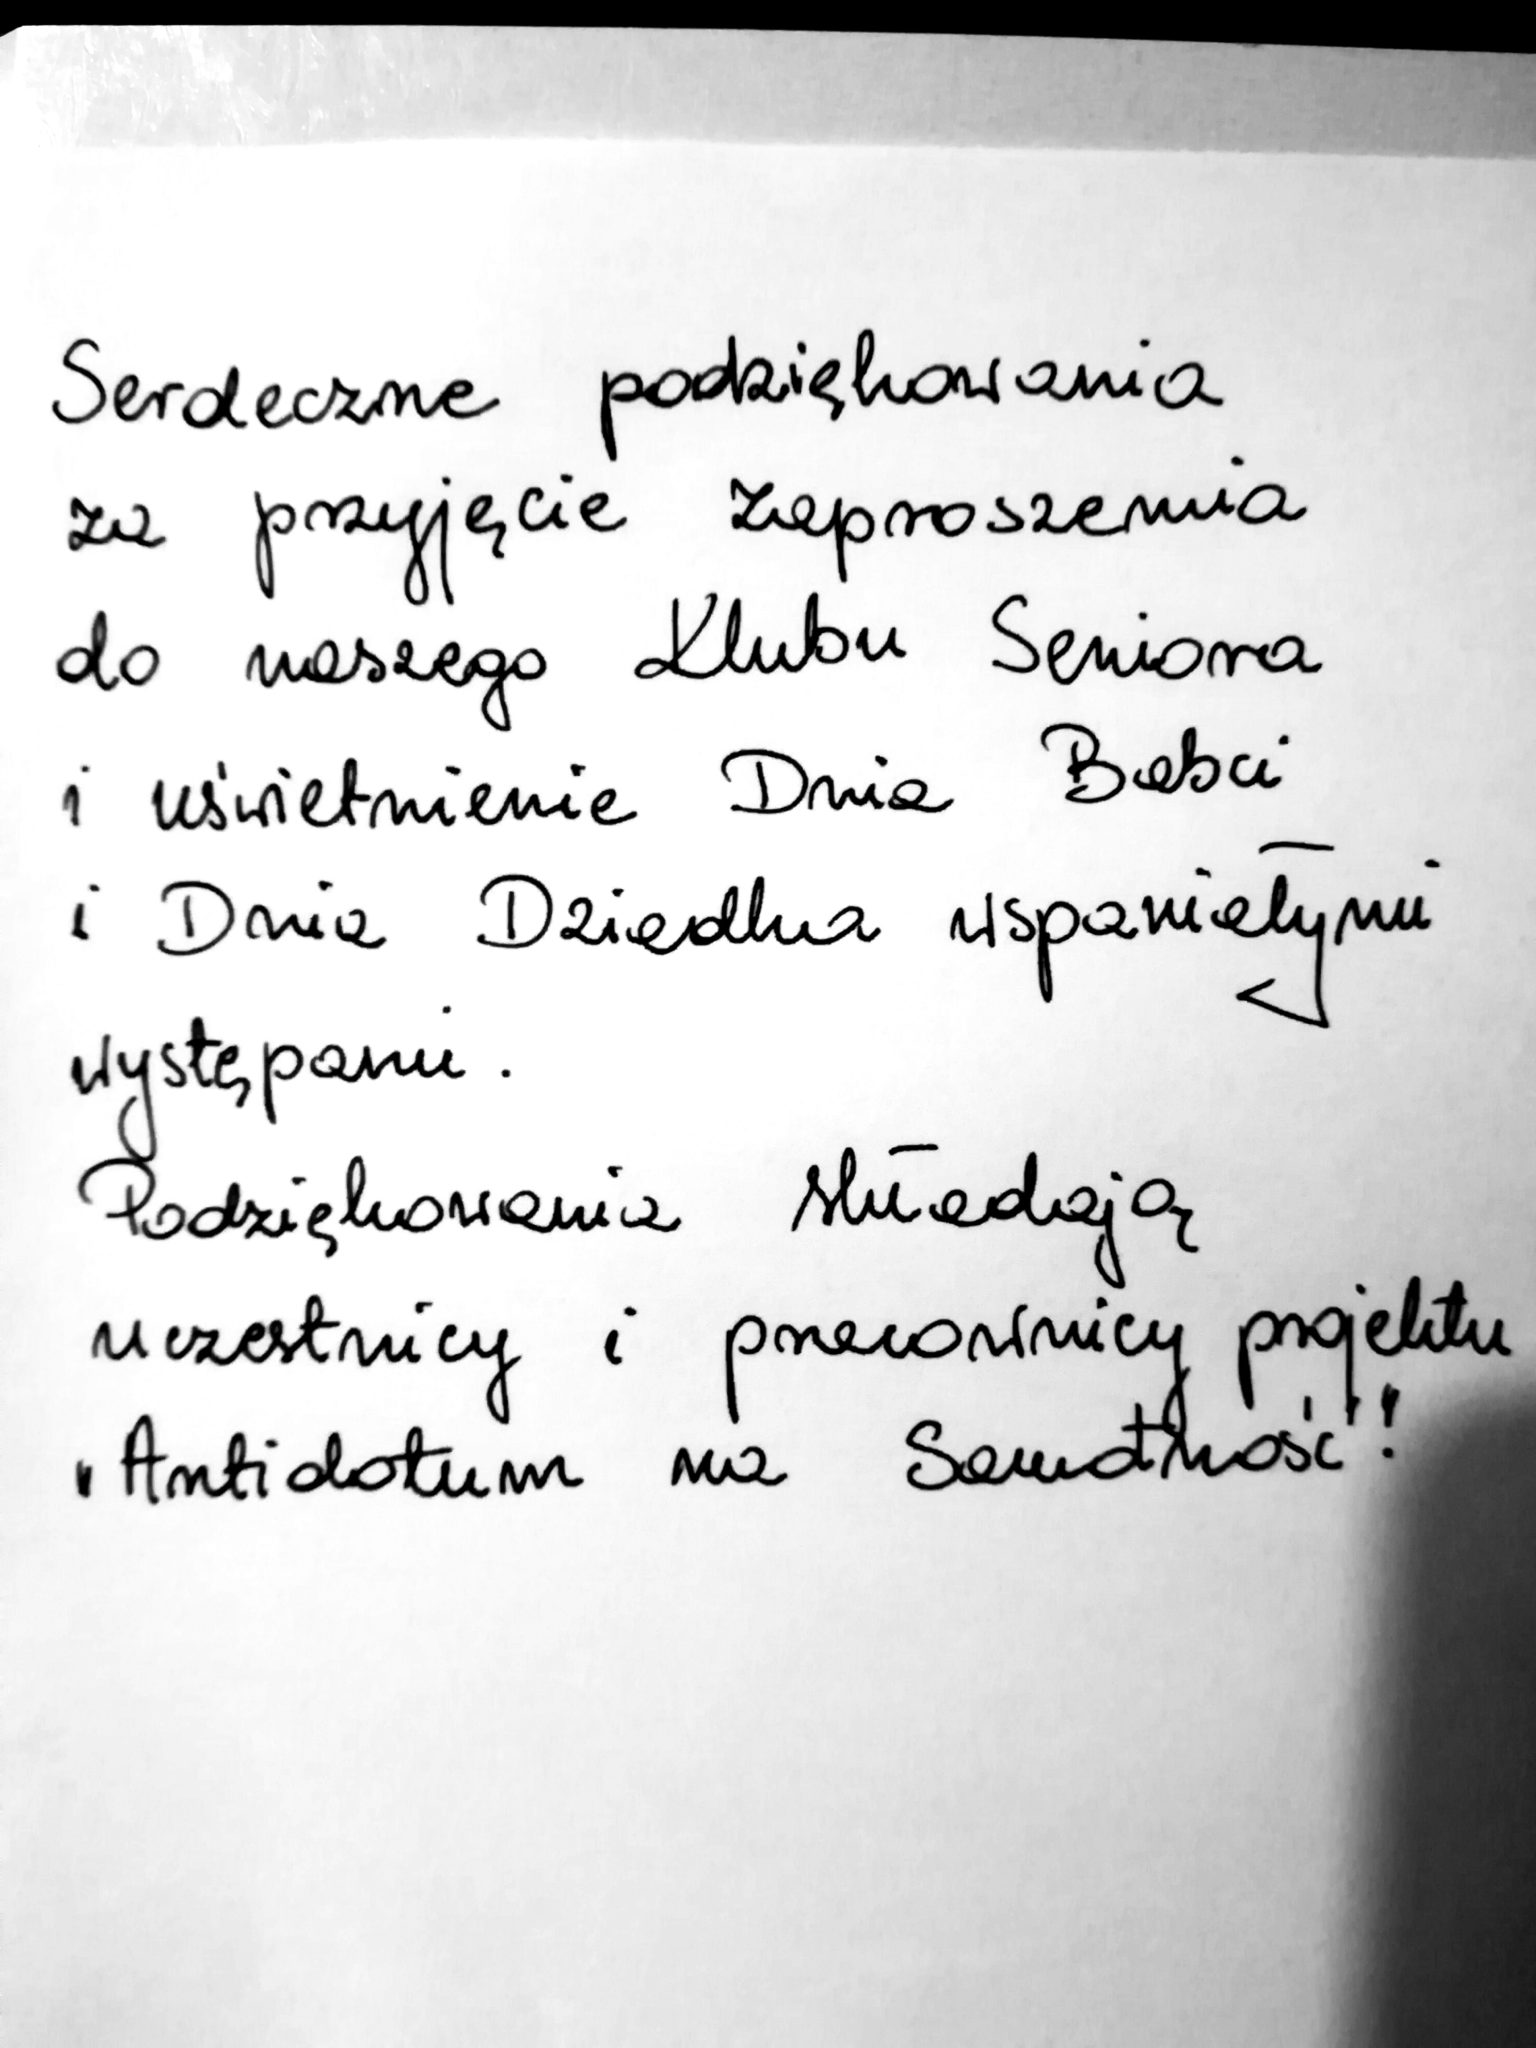 Serdeczne podziękowania
za przyjęcie zaproszenia
do naszego Klubu Seniora
i uświetnienie Dnia Babci
i Dnia Dziadka wspaniałymi
występami.
Podziękowania składają
uczestnicy i pracownicy projektu
"Antidotum na Samotność"!